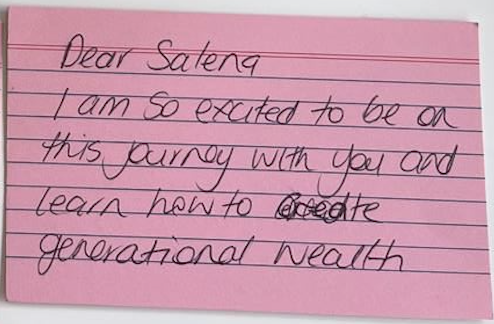 Dear Salena
I am so excited to be on
this journey with you and
learn how to create
generational wealth